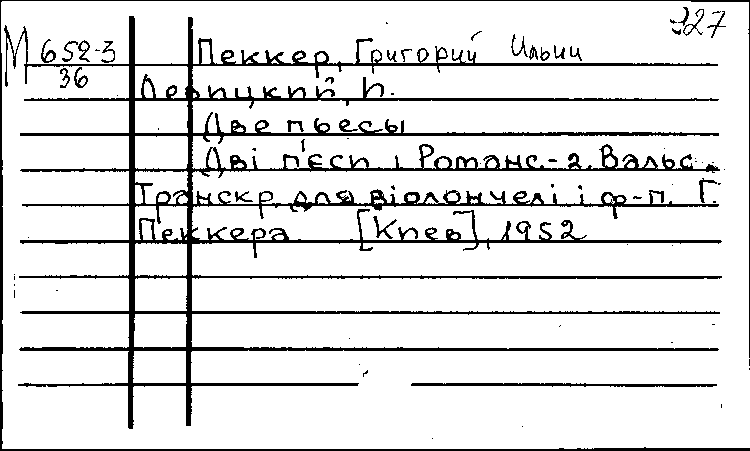 327
М 652-3
36
Пеккер, Григорий Ильич
Левицкий, И.
Две пьесы
Дві п'єси 1 Романс.-2. Вальс.
Транскр. для віолончелі і ф-п. Г.
Пеккера [Киев], 1952